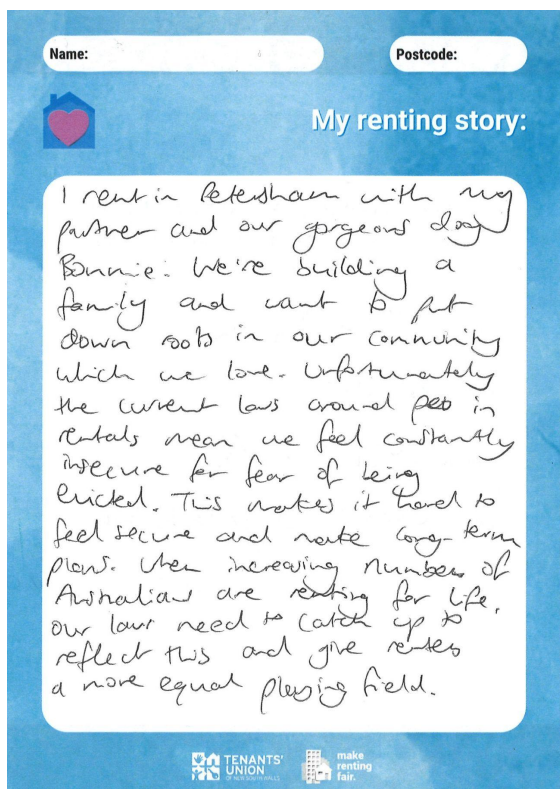 Name:
Postcode:
My renting story:
I rent in Petersham with my
partner and our gorgeous dog
Bonnie. We're building a
family and want to put
down roots in our community
which we love. Unfortunately
the current laws around pets in
rentals mean we feel constantly
insecure for fear of being
evicted. This makes it hard to
feel secure and make long-term
plans. When increasing numbers of
Australians are renting for life,
our laws need to catch up to
reflect this and give renters
a more equal playing field.
TENANTS'
UNION
OF NEW SOUTH WALES
make
renting
fair.